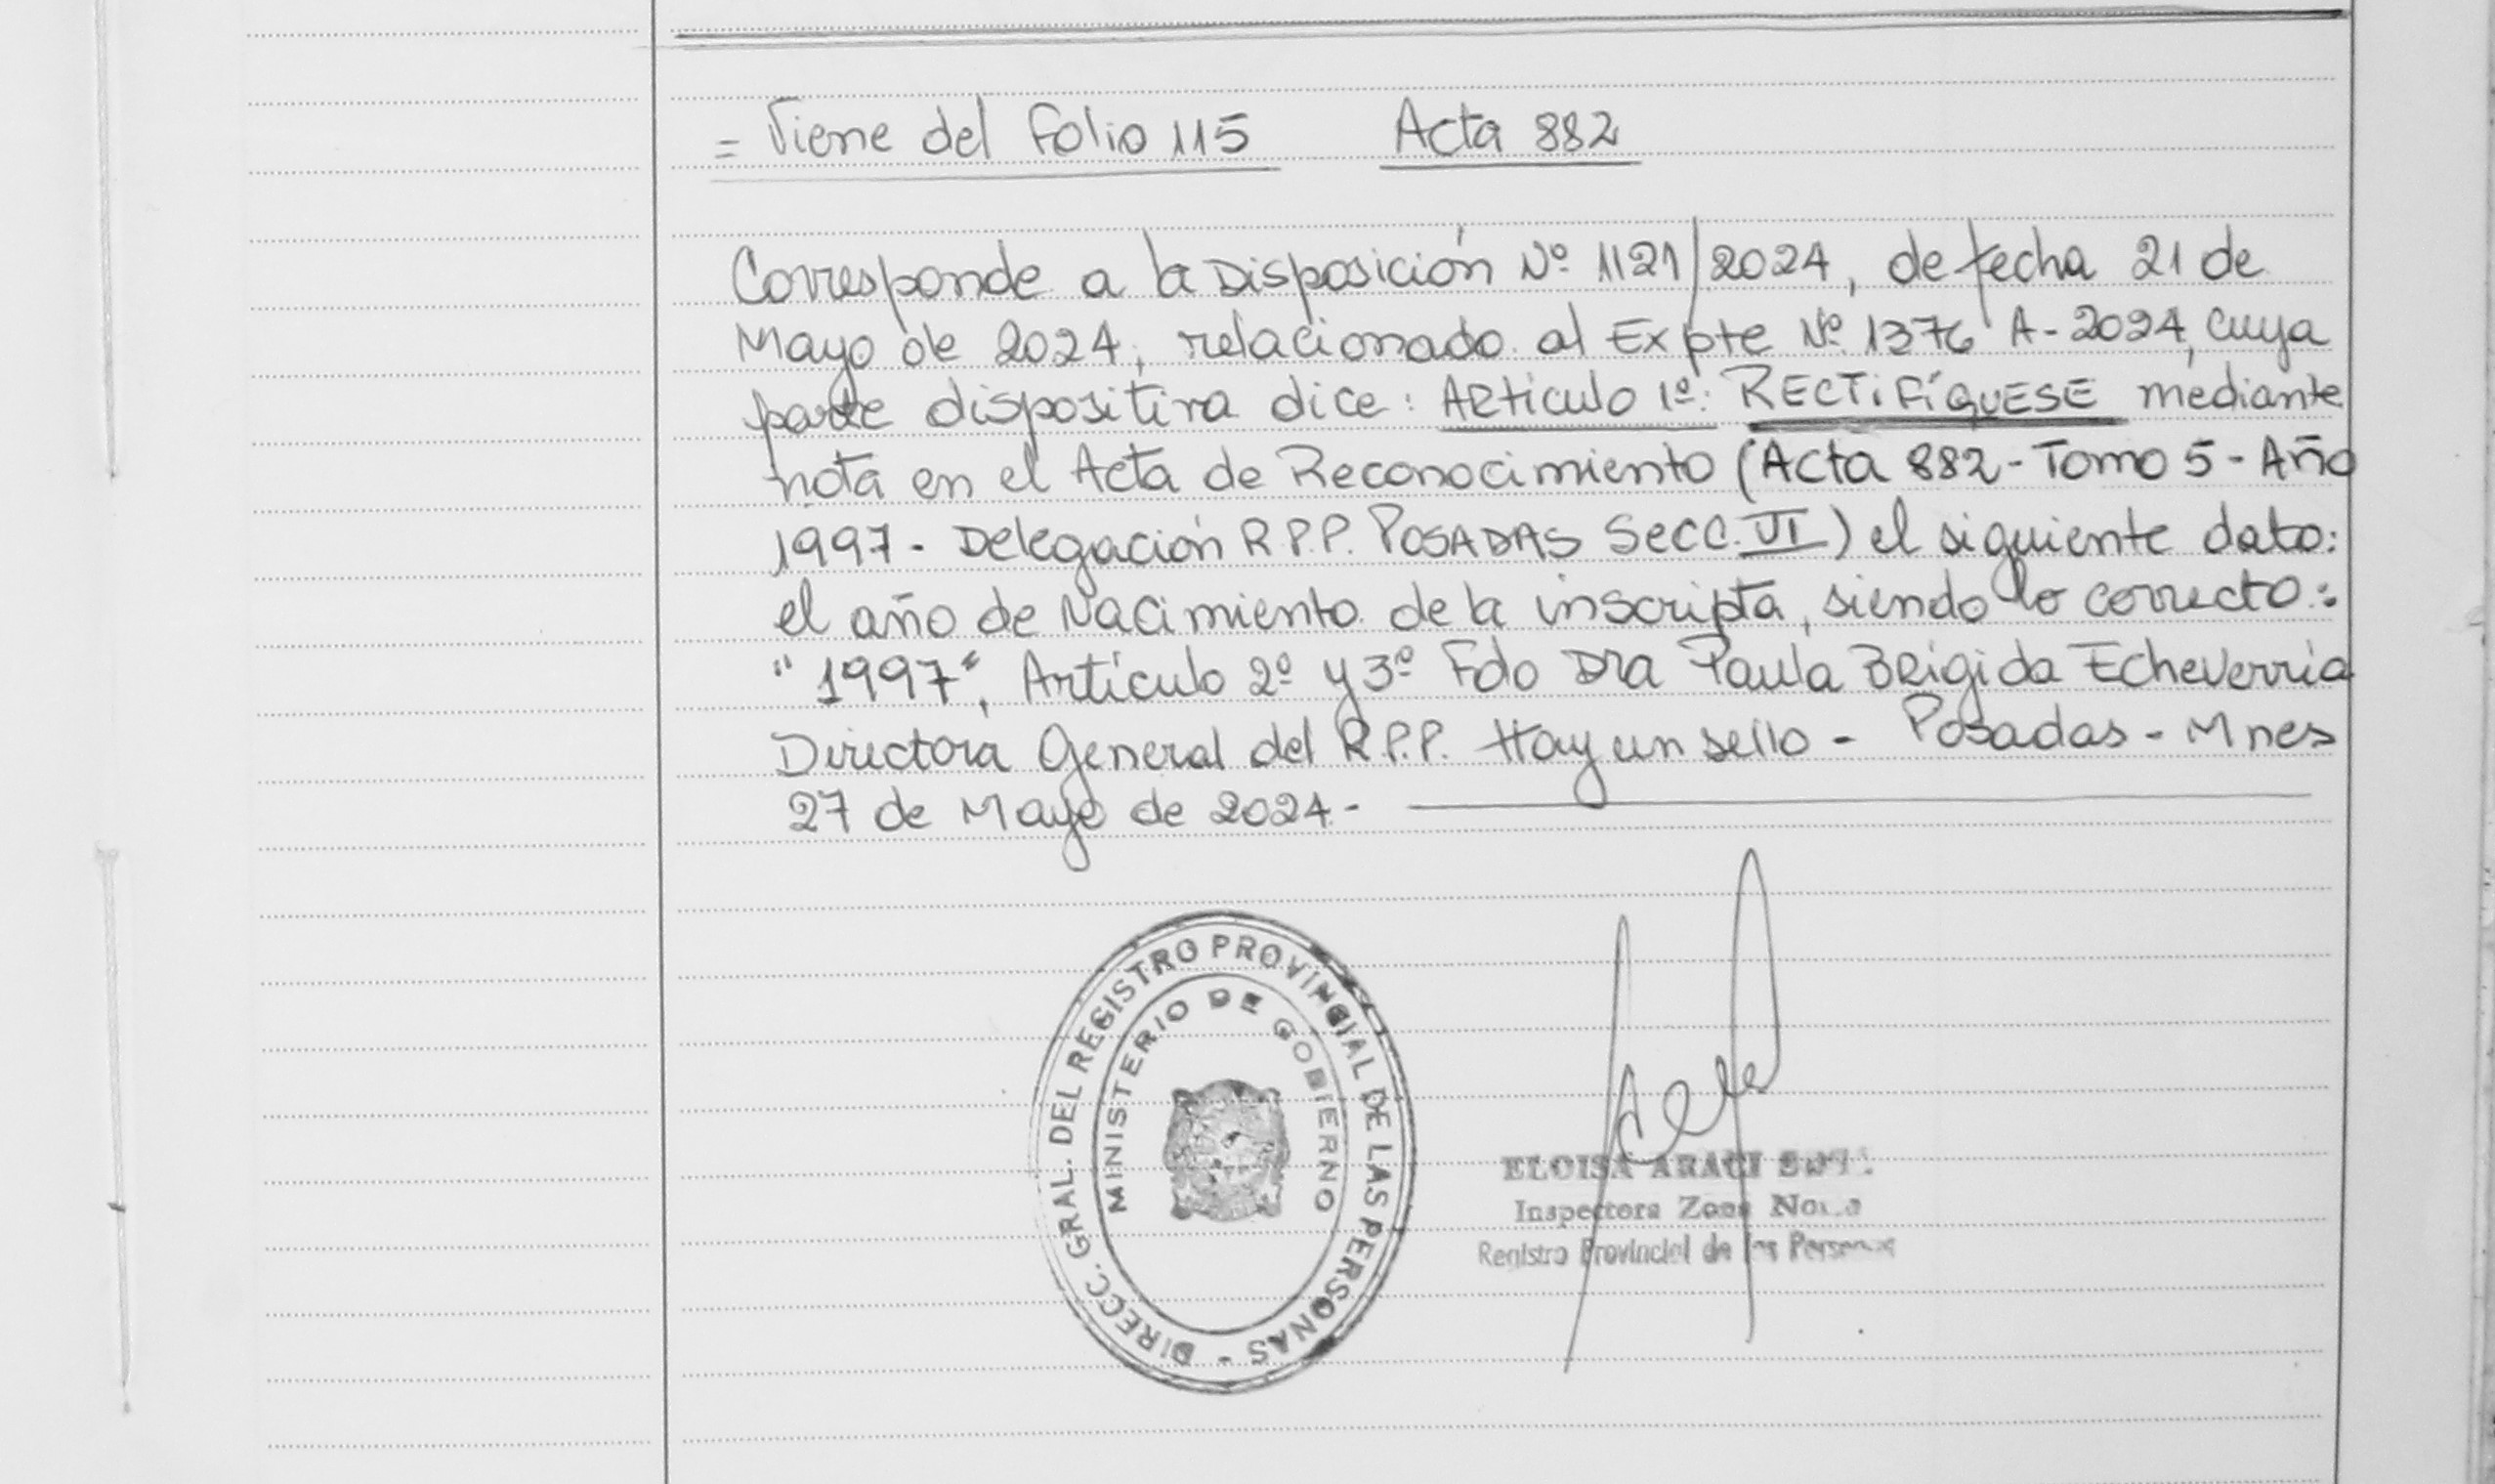 = Viene del Folio 115 Acta 882
Corresponde a la Disposición Nº 1121/2024, de fecha 21 de
Mayo de 2024, relacionado al Expte Nº 1376 A-2024, cuya
parte dispositiva dice: Artículo 1º: RECTIFÍQUESE mediante
nota en el Acta de Reconocimiento (Acta 882-Tomo 5-Año
1997- Delegación R.P.P. POSADAS Secc. VI) el siguiente dato:
el año de Nacimiento de la inscripta, siendo lo correcto:
"1997", Artículo 2º y 3º Fdo Dra Paula Brigida Echeverria
Directora General del R.P.P. Hay un sello - Posadas - Mnes
27 de Mayo de 2024.-
DIRECC. GRAL. DEL REGISTRO PROVINCIAL DE LAS PERSONAS -
MINISTERIO DE GOBIERNO
ELOISA ARACI
Inspectora Zona
Registro Provincial de las Personas